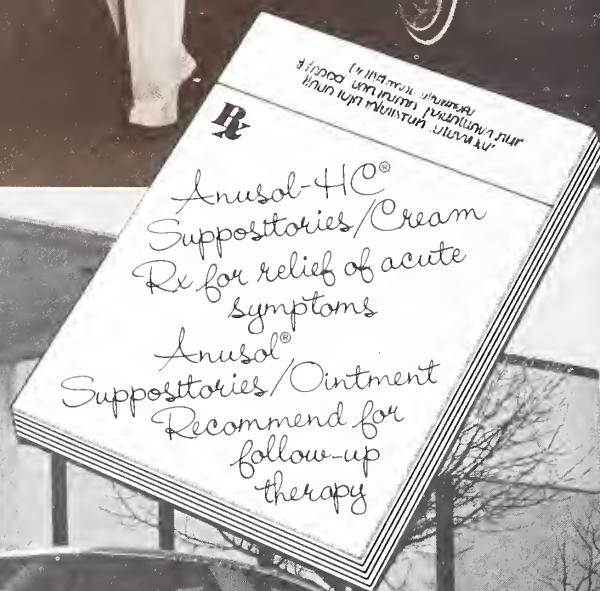 Rx
Anusol-HC®
Supposttories/Cream
Rx for relief of acute
symptoms
Anusol®
Supposttories/Ointment
Recommend for
follow-up
therapy